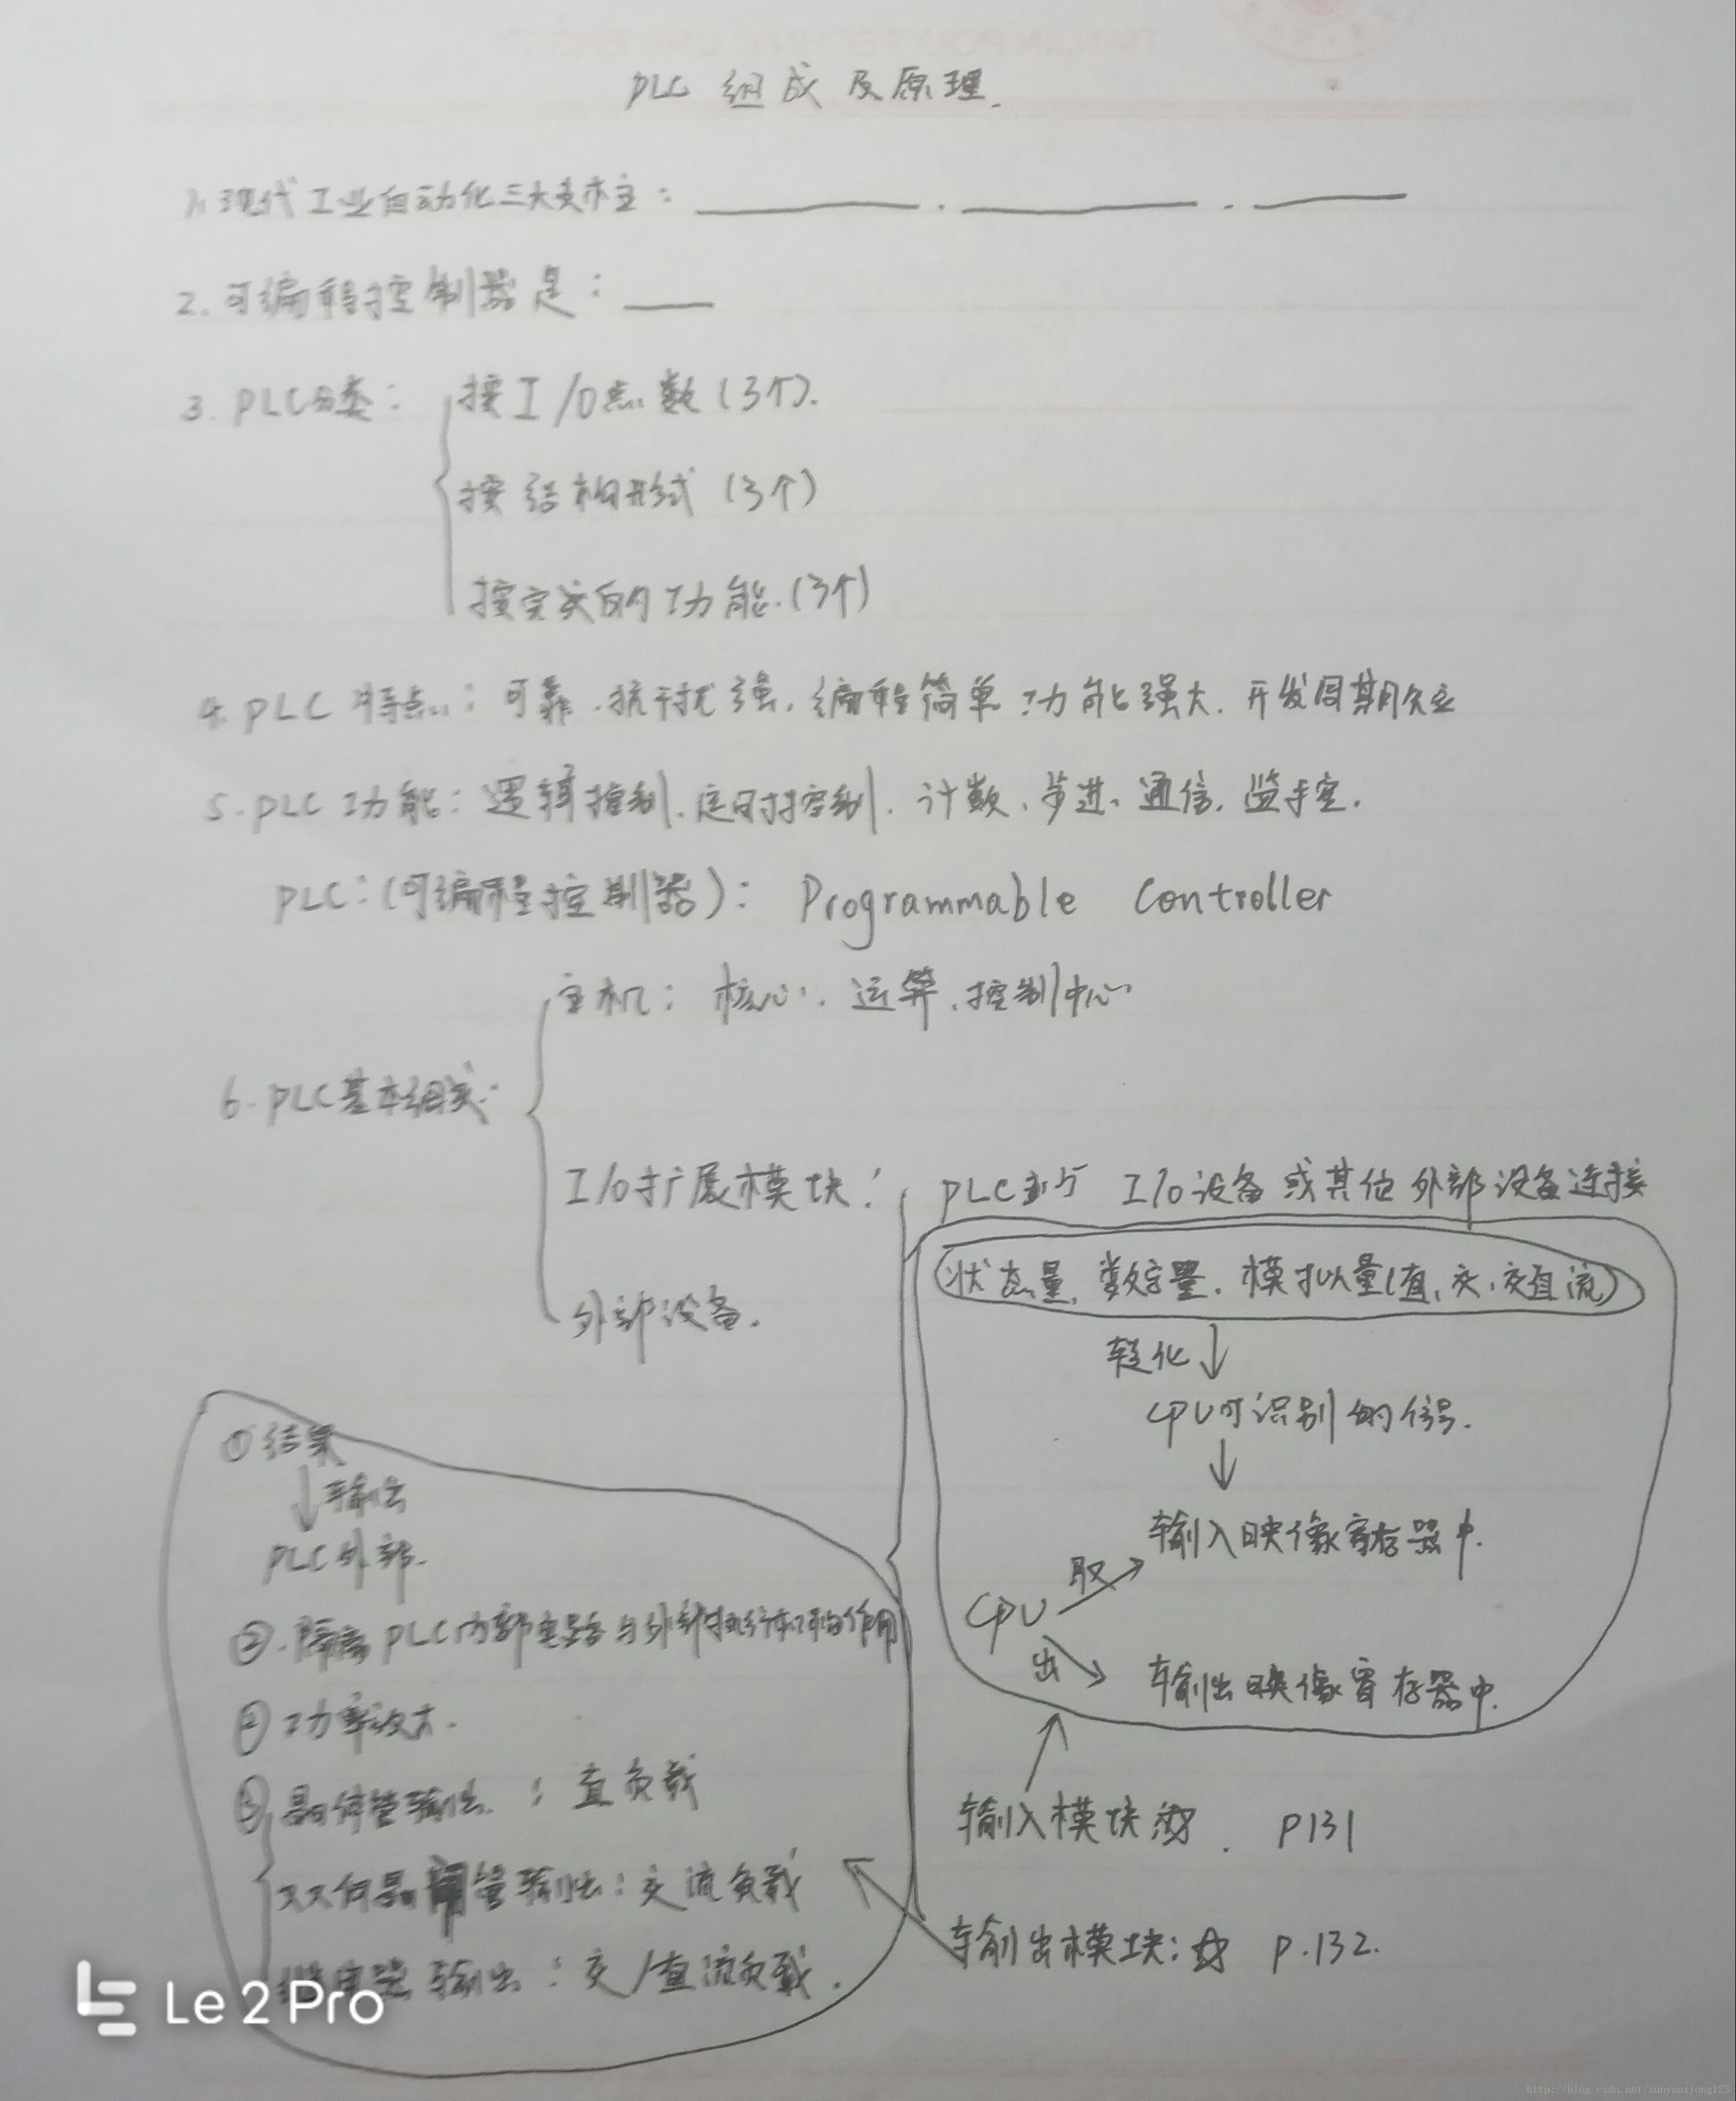 PLC 组成及原理.
1. 现代工业自动化三大支柱：______.______.______
2. 可编程控制器是：____
3. PLC分类：
按I/O点数(3个).
按结构形式(3个)
按实现的功能.(3个)
4. PLC 特点：可靠.抗干扰强.编程简单 功能强大.开发周期短
5. PLC 功能：逻辑控制.定时控制.计数、步进、通信.监控.
PLC：(可编程控制器)：Programmable Controller
6. PLC基本组成：
主机：核心.运算.控制中心
I/O扩展模块：
外部设备.
PLC与 I/O设备或其他外部设备连接
状态量.数字量.模拟量(直、交、交直流)
转化
CPU可识别的信号.
输入映像寄存器中.
CPU
取
出
输出映像寄存器中.
输入模块 . P131
输出模块：☆ P.132.
①结果
输出
PLC外部.
②.隔离PLC内部电路与外部执行 的作用
② 功率放大.
③ 晶体管输出：直负载
双向晶闸管输出：交流负载
继电器输出：交/直流负载.
Le 2 Pro
http://blog.csdn.net/sunyanxiong123